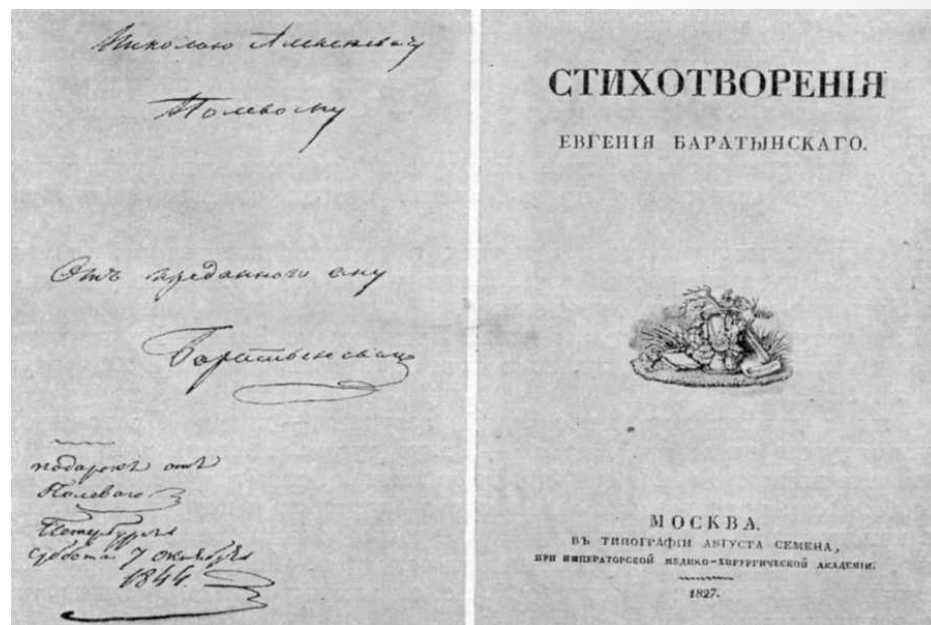 Николаю Алексеевичу
Полевому
Отъ преданнаго ему
Баратынскаго
подарокъ отъ
Полеваго
Петербургъ
Суббота 7 октября
1844
СТИХОТВОРЕНІЯ
ЕВГЕНІЯ БАРАТЫНСКАГО.
МОСКВА.
ВЪ ТИПОГРАФІИ АВГУСТА СЕМЕНА,
ПРИ ИМПЕРАТОРСКОЙ МЕДИКО-ХИРУРГИЧЕСКОЙ АКАДЕМІИ.
1827.